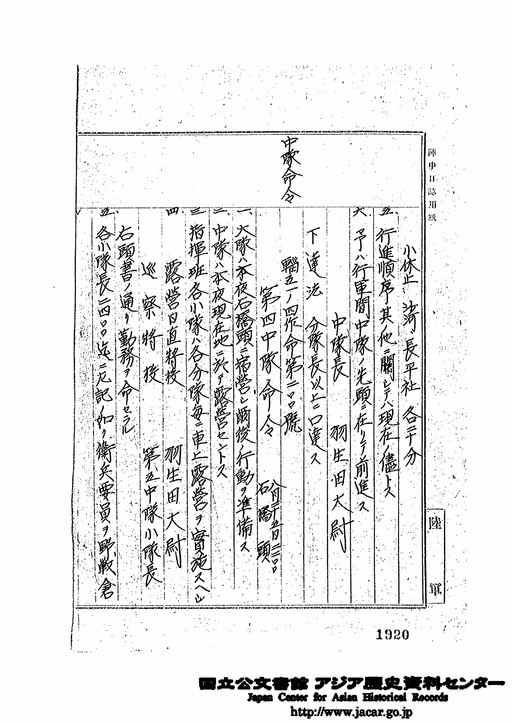 陣中日誌用紙
小休止 沙河、長平社 各二十分
五、行進順序其ノ他ニ關シテハ現在ノ儘トス
六、予ハ行軍間中隊ノ先頭ニ在リテ前進ス
中隊長 羽生田大尉
下達法 分隊長以上ニ口達ス
中隊命令
第四中隊命令
石橋頭
一、大隊ハ本夜石橋頭ニ宿營シ爾後ノ行動ヲ準備ス
二、中隊ハ本夜現在地ニ於テ露營セントス
三、指揮班各小隊ハ各分隊毎ニ車上露營ヲ實施スヘシ
四、露營日直將校 羽生田大尉
巡察將校 第五中隊小隊長
右頭書ノ通リ勤務ヲ命セラル
五、各小隊長ハ二四〇〇迄ニ左記ノ如ク衛兵要員ヲ野戰倉
陸軍
1920
国立公文書館 アジア歴史資料センター
Japan Center for Asian Historical Records
http://www.jacar.go.jp